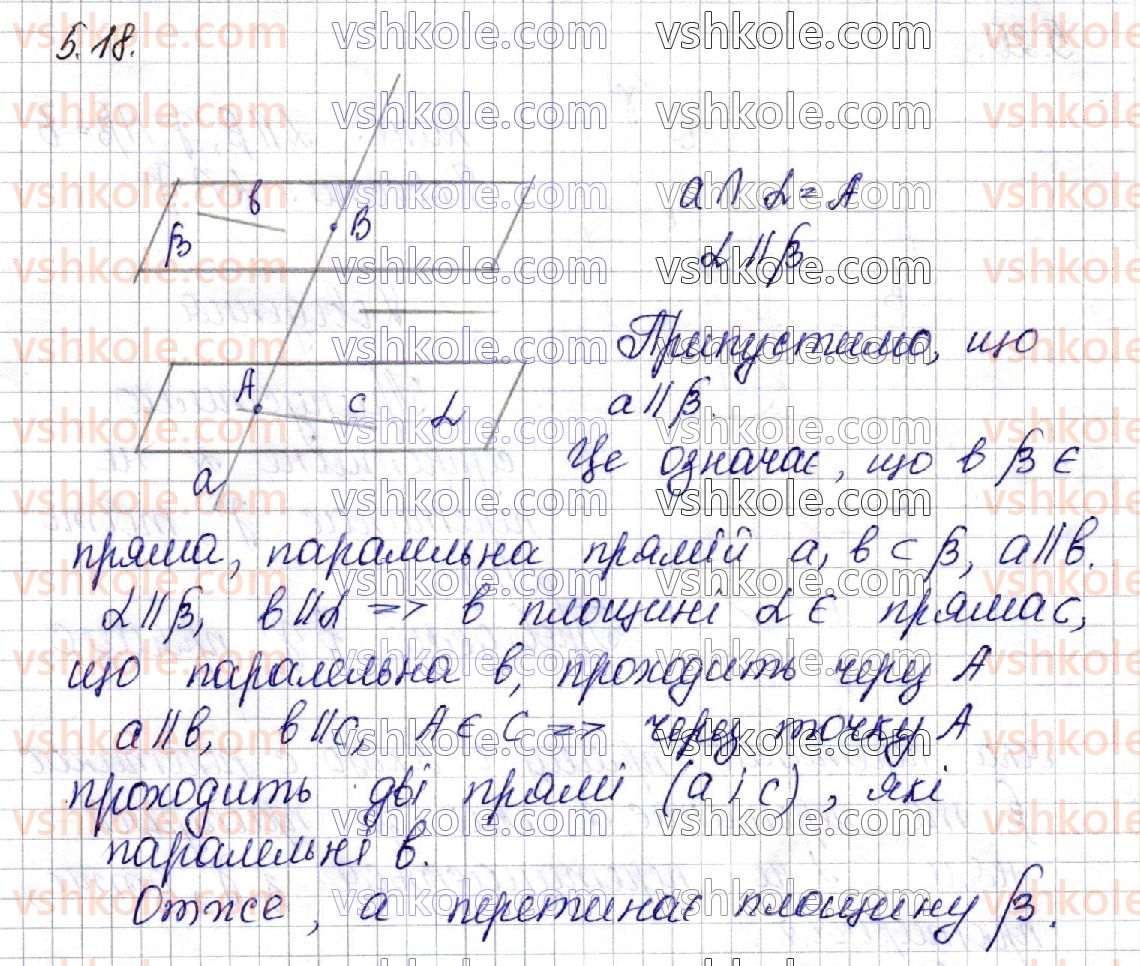 5.18.
в
β
B
A
c
α
a
a ∩ α = A
α || β
Припустимо, що
a || β.
Це означає, що в β є
пряма, паралельна прямій a, в ⊂ β, a || в.
α || β, в || α => в площині α є пряма c,
що паралельна в, проходить через A
a || в, в || c, A ∈ c => через точку A
проходить дві прямі (a і c), які
паралельні в.
Отже, a перетинає площину β.
vshkole.com